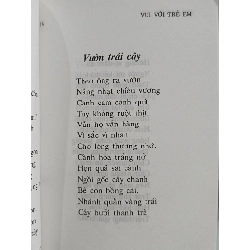 VUI VỚI TRẺ EM
Vườn trái cây
Theo ông ra vườn
Nắng nhạt chiều vương
Canh cam cành quít
Tuy không ruột thịt
Vẫn họ vẫn hàng
Vì sắc vì nhan
Cho lòng thương nhớ.
Cành hoa trắng nở
Hẹn quả sai cành
Ngồi gốc cây chanh
Bế con bòng cái.
Nhánh quằn vàng trái
Cây bưởi thanh trà